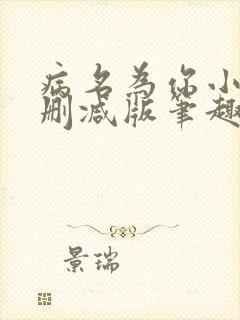 病名为你小
删减版笔趣
景瑞